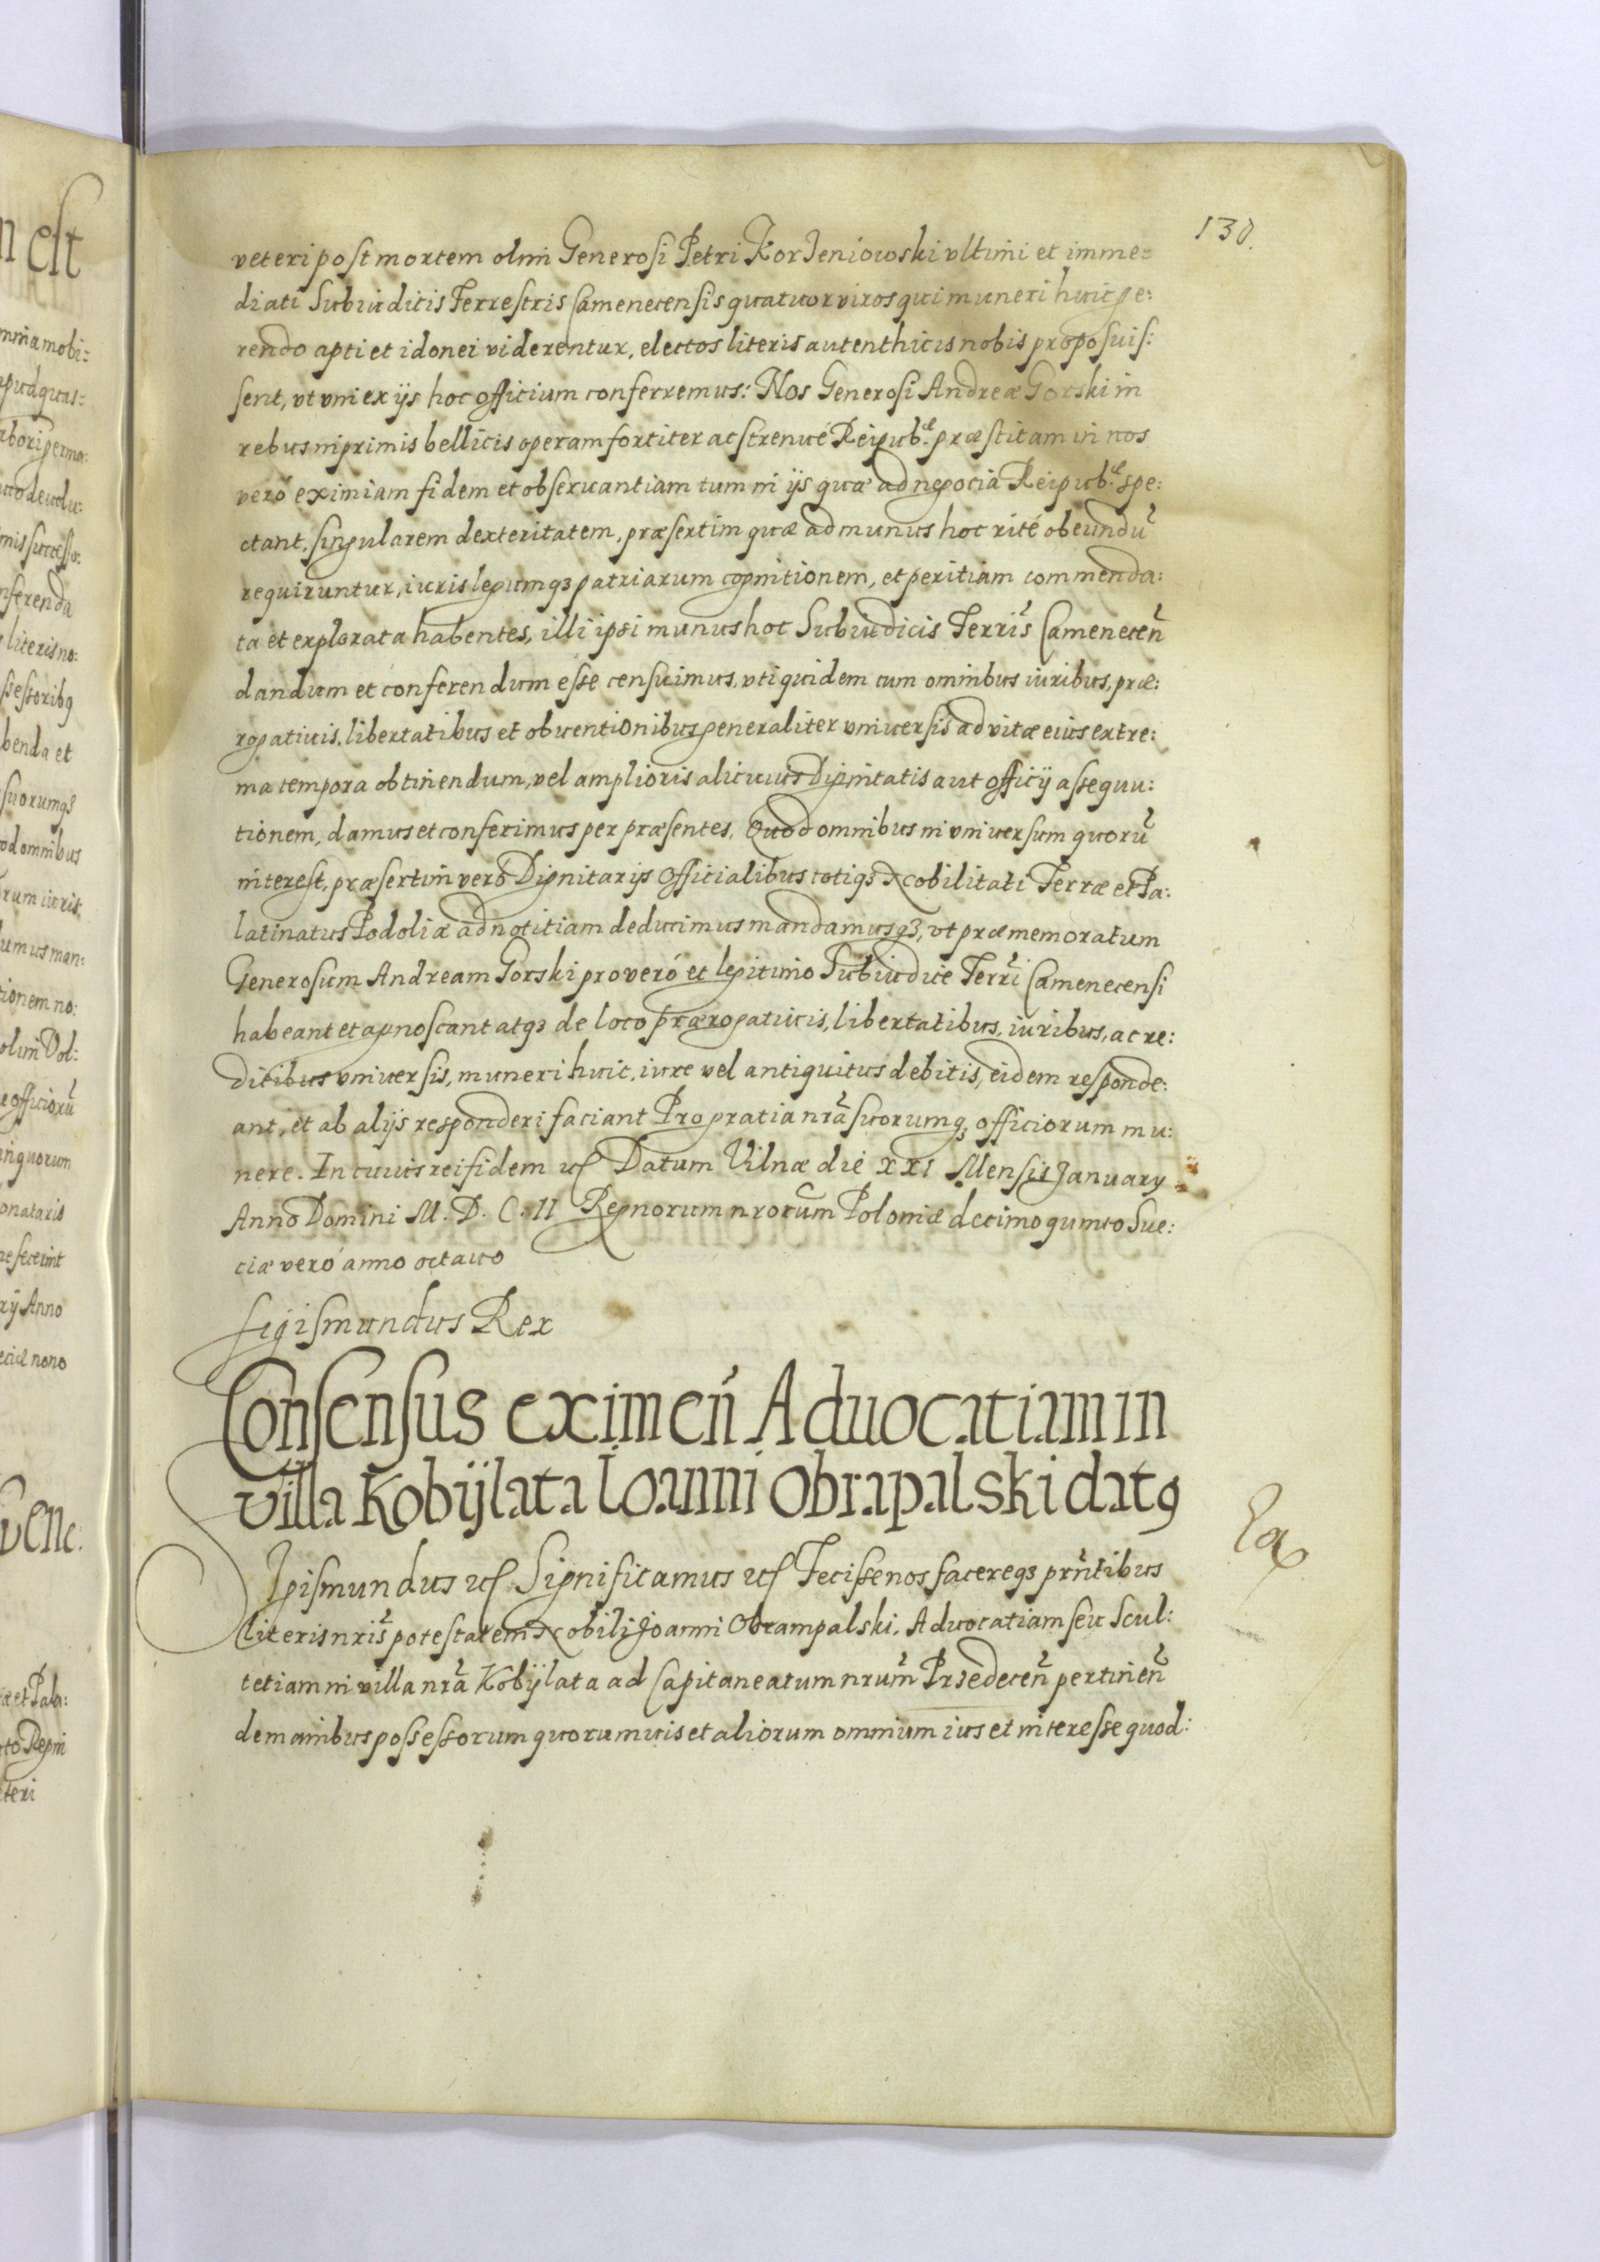 130.
veteri post mortem olim Generosi Petri Korzeniowski vltimi et imme=
diati Subiudicis Terrestris Camenecensis quatuor viros qui muneri huic ge:
rendo apti et idonei viderentur, electos literis autenthicis nobis proposuis:
sent, vt vni ex ijs hoc officium conferremus: Nos Generosi Andreæ Gorski in
rebus inprimis bellicis operam fortiter ac strenué Reipub.æ præstitam in nos
veró eximiam fidem et obseruantiam tum in ijs quæ ad negocia Reipub.æ spe:
ctant, singularem dexteritatem, præsertim quæ ad munus hoc rité obeundū
requiruntur, iuris legumqз patriarum cognitionem, et peritiam commenda:
ta et explorata habentes, illi ipsi munus hoc Subiudicis Terris̃ Cameneceñ
dandum et conferendum esse censuimus, vti quidem cum omnibus iuribus, præ:
rogatiuis, libertatibus et obuentionibus generaliter vniuersis ad vitæ eius extre:
ma tempora obtinendum, vel amplioris alicuius Dignitatis aut officij assequu:
tionem, damus et conferimus per præsentes. Quod omnibus in vniuersum quorū
interest, præsertim veró Dignitarijs Officialibus totiqз Nobilitati Terræ et Pa:
latinatus Podoliæ ad notitiam deducimus mandamusqз, vt præmemoratum
Generosum Andream Gorski pro veró et legitimo Subiudice Terrĩ Camenecensi
habeant et agnoscant atqз de loco prærogatiuis, libertatibus, iuribus, ac re:
ditibus vniuersis, muneri huic, iure vel antiquitus debitis, eidem responde:
ant, et ab alijs responderi faciant Pro gratia nrã suorumqз officiorum mu:
nere. In cuius rei fidem etc Datum Vilnæ die XXI Mensis January
Anno Domini M. D. C. II Regnorum nrorum̃ Poloniæ decimo quinto Sue:
ciæ veró anno octauo
Sigismundus Rex
Consensus eximeñ Aduocatiam in
villa Kobÿlata Ioanni Obrapalski datꝯ
Sigismundus etc Significamus etc Fecisse nos facereqз prñtibus
literis nris̃ potestatem Nobili Joanni Obrampalski, Aduocatiam seu Scul:
tetiam in villa nrã Kobÿlata ad Capitaneatum nrum̃ Przedeceñ pertineñ
de manibus possessorum quorumuis et aliorum omnium ius et interesse quod: